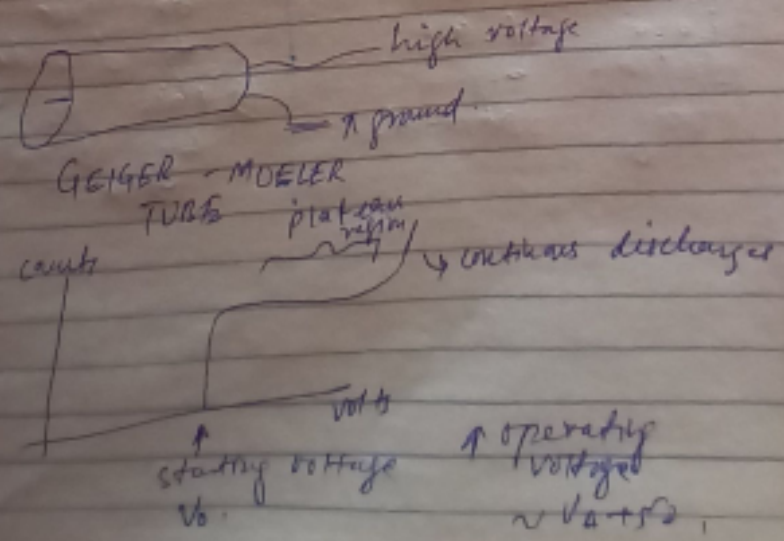 high voltage
↑ ground.
GEIGER - MUELER
TUBE
plateau
region
counts
↳ continous discharges
volts
↑
starting voltage
V₀.
↑ operating
voltage
~